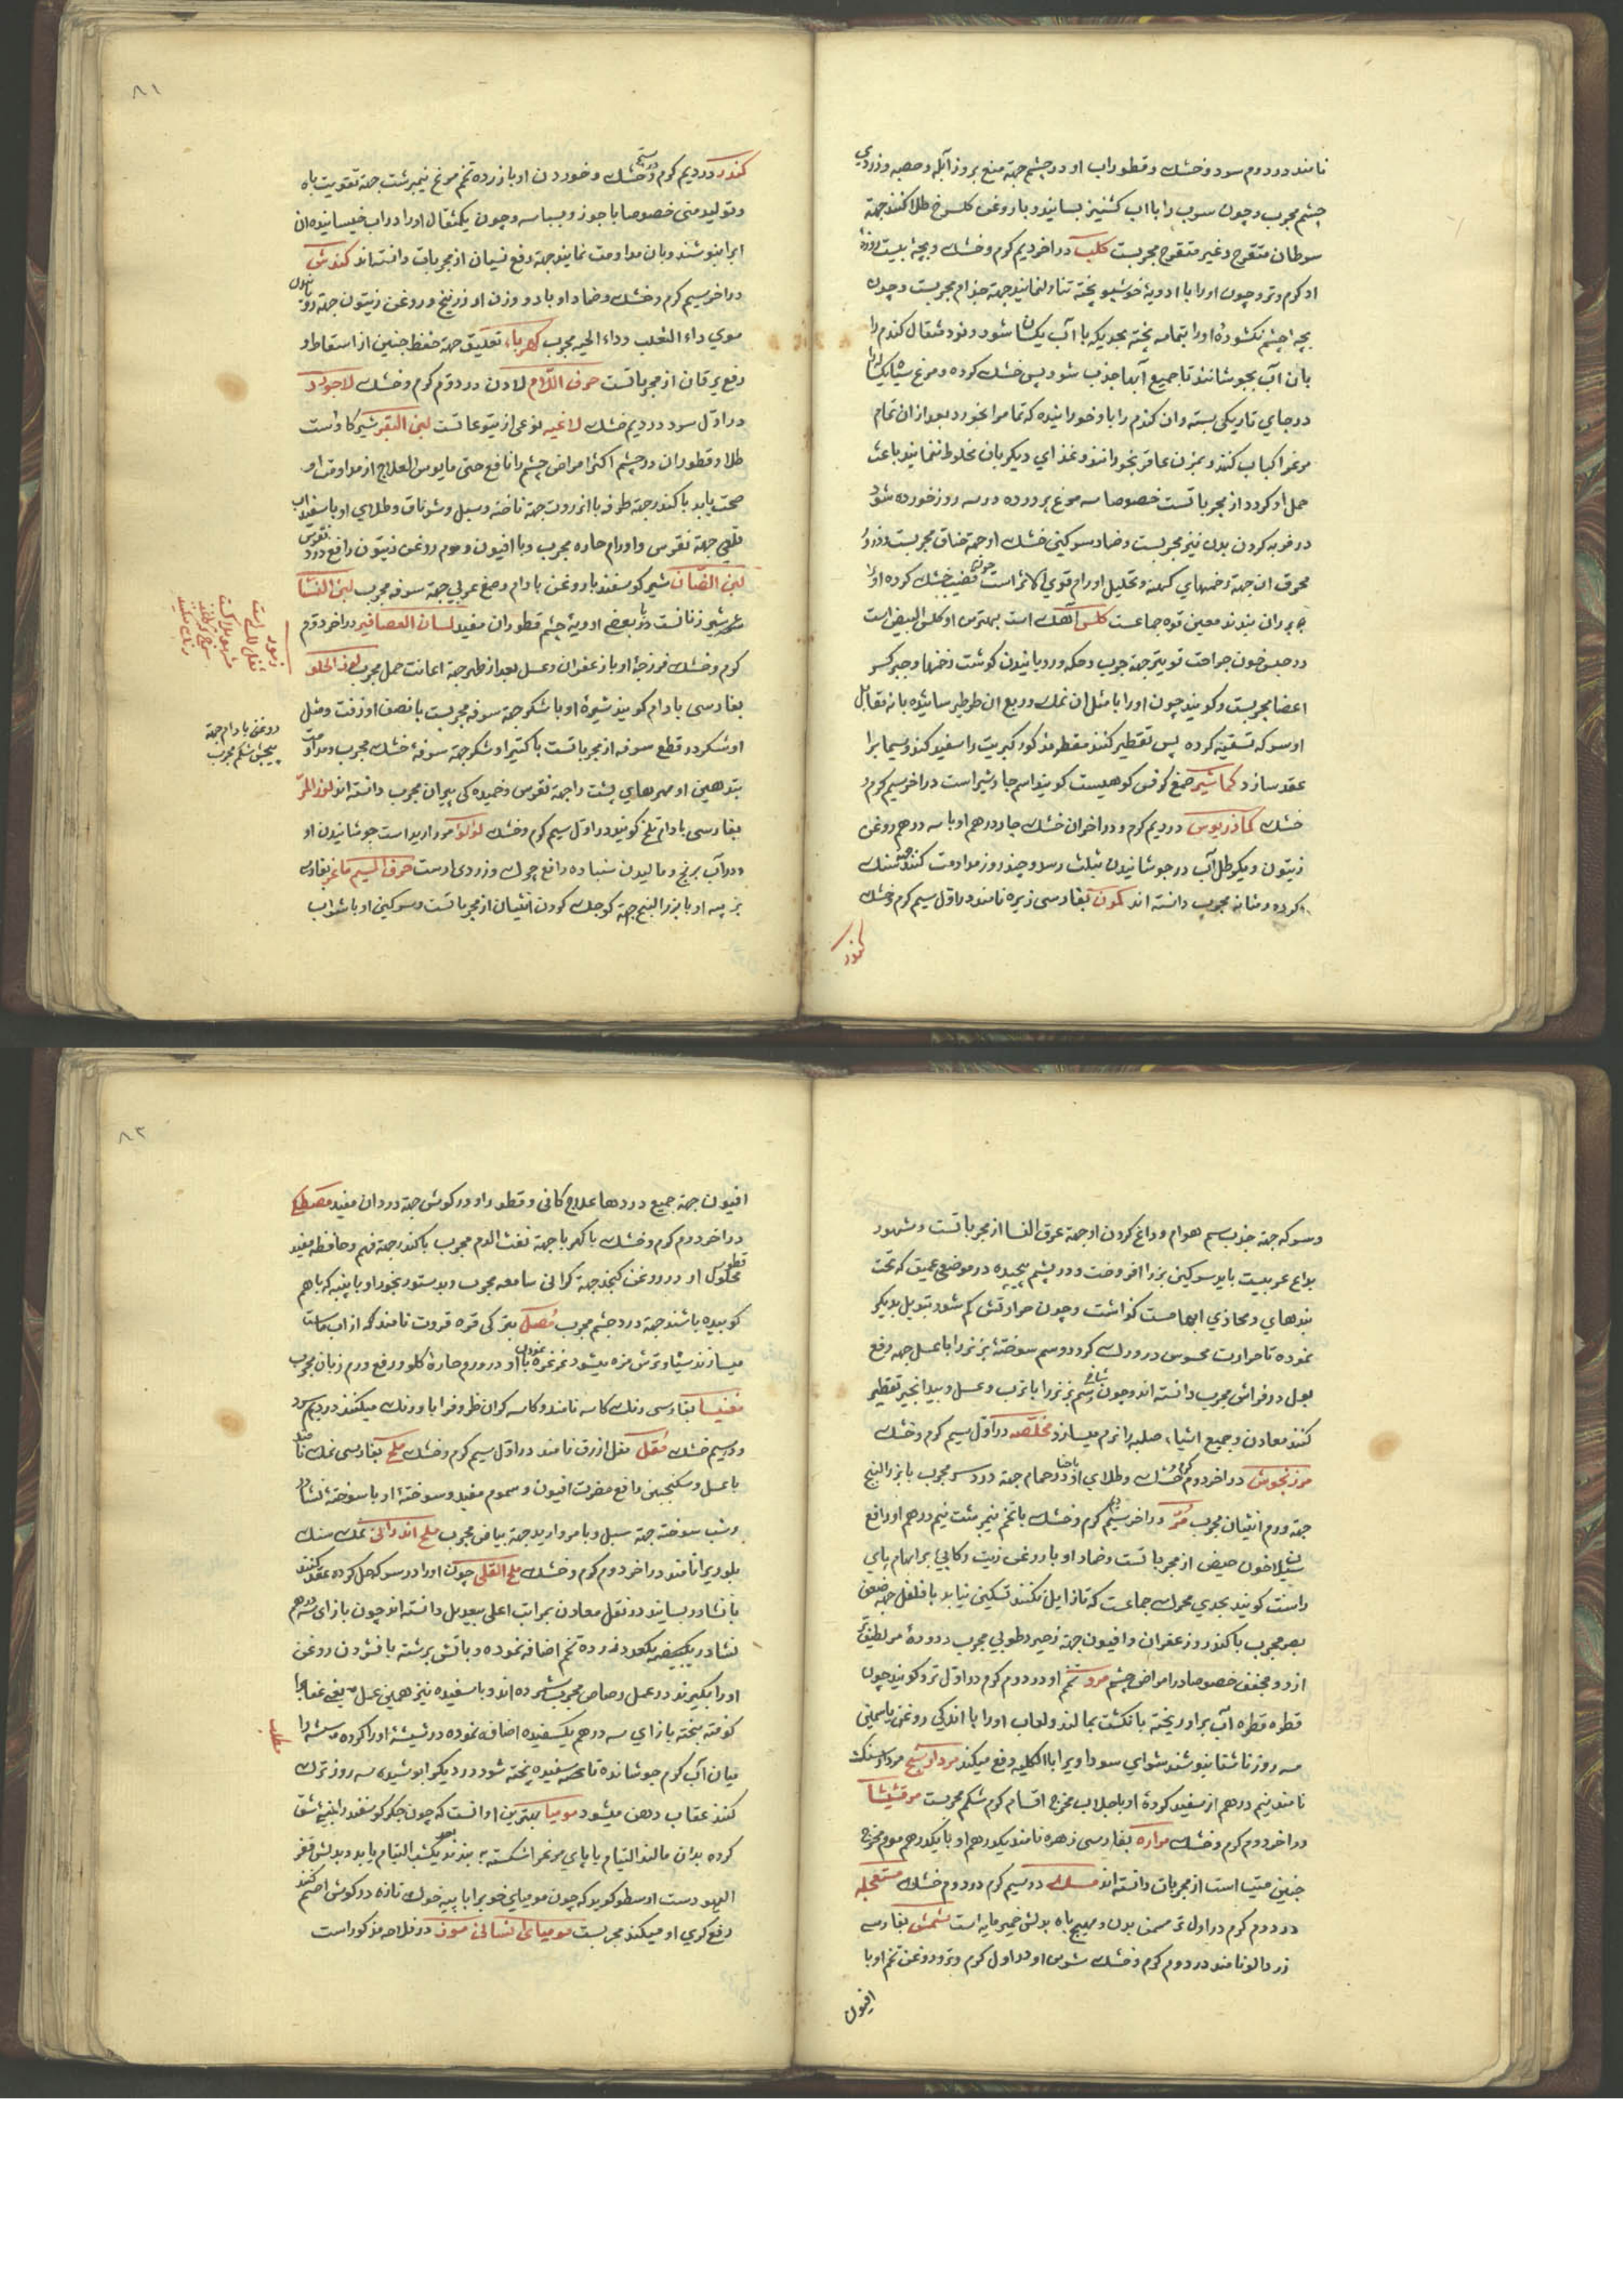 نامند در دوم سرد و خشک و قطور اب او در چشم جهة منع بروز آبله و حصبه و زردی
چشم مجرب و چون سرب را با اب کشنیز بسایند و با روغن کلسرخ طلا کنند جهة
سرطان متقرح و غیر متقرح مجربست کلب در اخر دیم کرم و خشک و بچۀ بیست روزۀ
او کرم و تر و چون اورا با ادویۀ خوشبو پخته تناول نمایند جهة جذام مجربست و چون
بچه چشم نکشودۀ اورا بتمامه پخته بحدیکه با آب یکسان شود و نود مثقال کندم را
بان آب بجوشانند تا جمیع آبها جذب شود پس خشک کرده و مرغ سیاه یکساله را
در جای تاریکی بسته و ان کندم را باو خورانیده که تمام را بخورد بعد از ان تمام
مرغ را کباب کنند و بزن عاقر بخورانند و غذای دیکر بان مخلوط ننمایند باعث
حمل او کردد از مجرباتست خصوصا سه مرغ پرورده در سه روز خورده شود
در فربه کردن بدن نیز مجربست و ضماد سرکین خشک او جهة خناق مجربست و ذرور
محرق ان جهة زخمهای کهنه و تحلیل اورام قوی الاثر است چون قضیب خشک کرده اورا
بر ران بندند معین قوه جماعست کلس آهک است بهترین او کلس البیض است
در حبس خون جراحت قویتر جهة جرب و حکه و رویانیدن کوشت زخمها و جبر کسر
اعضا مجربست و کویند چون اورا با مثل ان نمک و ربع ان طرطیر سائیده بانه مقابل
او سرکه تسقیه کرده پس تقطیر کنند مقطر مذکور کبریت را سفید کند و سیماب را
عقد سازد کماشیر صمغ کرفس کوهیست کویند اسم جاوشیر است در اخر سیم کرم و
خشک کماذریوس در دیم کرم و در اخر ان خشک چهار درهم او با سه درهم روغن
زیتون و یکرطل آب در جوشانیدن بثلث رسد و چند روز مداومت کنند جهة سنک
کرده و مثانه مجرب دانسته اند کمون بفارسی زیره نامند در اول سیم کرم و خشک
کندر
۸۱
کندر در دیم کرم و خشک و خوردن او با زرده تخم مرغ نیمبرشت جهة تقویت باه
و تولید منی خصوصا با جوز و بسباسه و چون یکمثقال اورا در اب خیسانیده ان
ابرا بنوشند و بان مداومت نمایند جهة دفع نسیان از مجربات دانسته اند کندش
در اخر سیم کرم و خشک و ضماد او با دو وزن او زرنیخ و روغن زیتون جهة رویانیدن
موی داء الثعلب و داء الحیه مجرب کهربا تعلیق جهة حفظ جنین از اسقاط و
رفع یرقان از مجرباتست حرف اللام لادن در دوم کرم و خشک لاجورد
در اول سرد در دیم خشک لاغیه نوعی از یتوعاتست لبن البقر شیر کاو است
طلا و قطور ان در چشم اکثر امراض چشم را نافع حتی مایوس العلاج از مداومت او
صحت یابد با کندر جهة طرفه با انزروت جهة ناخنه و سبل و شرناق و طلای او با سفیداب
قلعی جهة نقرس و اورام حاره مجرب و با افیون و موم روغن زیتون رافع درد نقرس
لبن الضان شیر کوسفند با روغن بادام و صمغ عربی جهة سرفه مجرب لبن النسا
شیر زنانست و با بعضی ادویۀ چشم قطور ان مفید لسان العصافیر در اخر دوم
کرم و خشک فرزجۀ او با زعفران و عسل بعد از طهر جهة اعانت حمل مجرب لوز الحلو
بفارسی بادام کویند شیرۀ او با شکر جهة سرفه مجربست با نصف او زفت و مثل
او شکر در قطع سرفه از مجرباتست با کتیرا و شکر جهة سرفۀ خشک مجرب و مداومت
بتدهین او مهرهای پشت را جهة نقرس و خمیده کی پیران مجرب دانسته اند لوز المر
بفارسی بادام تلخ کویند در اول سیم کرم و خشک لؤلؤ مروارید است جوشانیدن او
در آب برنج و مالیدن سنباده رافع چرک و زردی اوست حرف المیم ماعز بفارسی
بز پیه او با بزر البنج جهة کوچک کردن انثیان از مجرباتست و سرکین او با شراب
روغن بادام جهة
پیچش شکم مجرب
و سرکه جهة جذب سم هوام و داغ کردن او جهة عرق النسا از مجرباتست و مشهور
بداغ عربیست باید سرکین بز را افروخت و در پشم پیچیده در موضع عمیق که تحت
بندهای و محاذی ابهامست کذاشت و چون حرارتش کم شود تبدیل بدیکر
نموده تا حرارت محسوس در ورک کردد و سم سوختۀ بز نر را با عسل جهة رفع
بول در فراش مجرب دانسته اند و چون شاخ و سم بز نر را با ترب و عسل و بیدانجیر تقطیر
کنند معادن و جمیع اشیاء صلبه را نرم میسازد مخلصه در اول سیم کرم و خشک
مرزنجوش در اخر دوم کرم و خشک و طلای او با حنا در حمام جهة درد سر مجرب با بزر البنج
جهة ورم انثیان مجرب مر در اخر سیم کرم و خشک با تخم نیمبرشت نیم درهم او رافع
سیلان خون حیض از مجرباتست و ضماد او با روغن زیت رکابی بر ابهام پای
راست کویند بحدی محرک جماعست که تا زایل نکنند تسکین نیابد با فلفل جهة ضعف
بصر مجرب با کندر و زعفران و افیون جهة زحیر رطوبی مجرب و دودۀ مر لطیفتر
از او و مجفف خصوصا در امراض چشم مرو تخم او در دوم کرم در اول تر و کویند چون
قطره قطره آب بر او ریخته با نکشت بمالند و لعاب اورا با اندکی روغن یاسمین
سه روز ناشتا بنوشند سودای سوداویرا بالکلیه دفع میکند مرداسنج مرداسنک
نامند نیم درهم از سفید کردۀ او با جلاب مخرج اقسام کرم شکم مجربست مرقشیشا
در اخر دوم کرم و خشک مراره بفارسی زهره نامند یکدرهم او با یکدرهم موم مخرج
جنین میت است از مجربات دانسته اند مسک در سیم کرم در دوم خشک مستعجله
در دوم کرم در اول تر مسمن بدن و مهیج باه بدلش خمیر مایه است مشمش بفارسی
زردالو نامند در دوم کرم و خشک سوس او در اول کرم و تر و روغن تخم او با
افیون
۸۲
افیون جهة جمیع دردها علاج کافی و قطور او در کوش جهة درد ان مفید مصطکی
در اخر دوم کرم و خشک با کهربا جهة نفث الدم مجرب با کندر جهة فهم و حافظه مفید
قطور محلول او در روغن کنجد جهة کرانی سامعه مجرب و بدستور بخور او با پنبه که با هم
کوبیده باشند جهة درد چشم مجرب مصل بترکی قره قروت نامند که از اب ماست
میسازند سیاه و ترش مزه میشود غرغره نمودن با او در ورم حارۀ کلو و رفع ورم زبان مجرب
مغنیسا بفارسی رنک کاسه نامند و کاسه کران ظروف را باو رنک میکنند در دیم سرد
و در سیم خشک مقل مقل ازرق نامند در اول سیم کرم و خشک ملح بفارسی نمک نامند
با عسل و سکنجبین رافع مضرت افیون و سموم مفید و سوختۀ او با سوختۀ نشادر
و شب سوخته جهة سبل و با مروارید جهة بیاض مجرب ملح اندرانی نمک سنک
بلوریرا نامند در اخر دوم کرم و خشک ملح القلی چون اورا در سرکه حل کرده عقد کنند
با نشادر بسایند در نقل معادن بمراتب اعلی بیعدیل دانسته اند چون بازای سه درهم
نشادر یکبیضه یکعدد زرده تخم اضافه نموده و باتش برشته بافشردن روغن
اورا بکیرند در عمل رصاص مجرب شمرده اند و با سفیده نیز همین عمل یعنی عقاب را
کوفته بیخته بازای سه درهم یکسفیده اضافه نموده در شیشه اورا کرده و شیشه را
میان آب کرم جوشانده تا تخمه سفیده پخته شود در دیکر ابو شیده سه روز ترک
کنند عقاب دهن میشود مومیا بهترین او انست که چون جکر کوسفند را بنی شق
کرده بدان مالند التیام یابد پای مرغ را شکسته به بندند بعد یکشب التیام یابد و بدلش قفر
الیهود است ارسطو کوید که چون مومیای خوبرا با پیه خوک تازه در کوش اصم کنند
رفع کری او میکند مجربست مومیای انسانی سرف در فلاحه مذکور است
مطلب